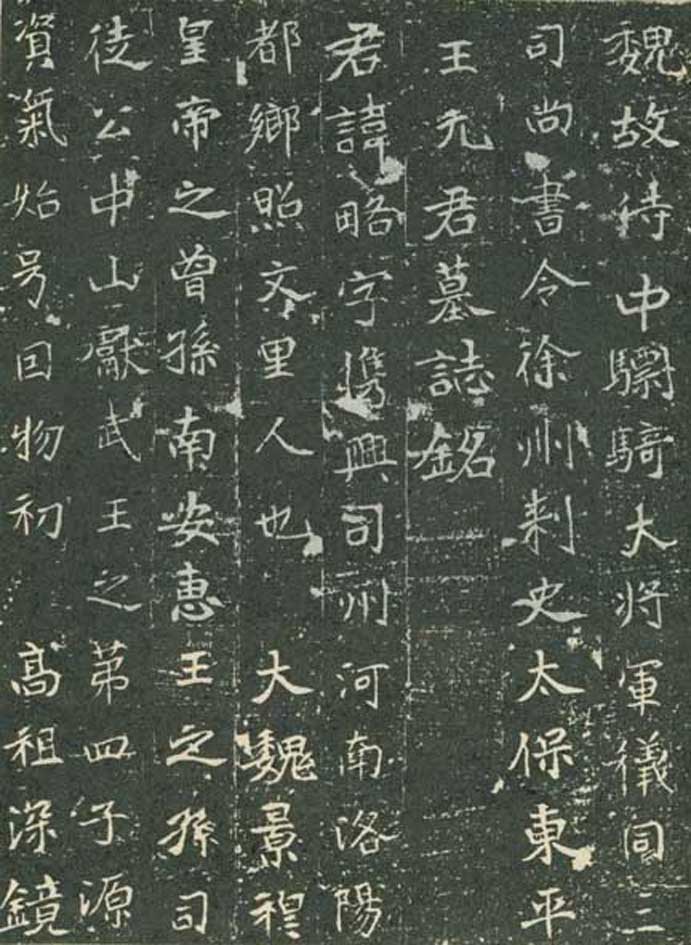 魏故侍中驃騎大将軍儀同三
司尚書令徐州刺史太保東平
王元君墓誌銘
君諱略字㒞興司州河南洛陽
都鄉照文里人也大魏景穆
皇帝之曾孫南安惠王之孫司
徒公中山獻武王之第四子源
資氣始号回物初高祖深鏡